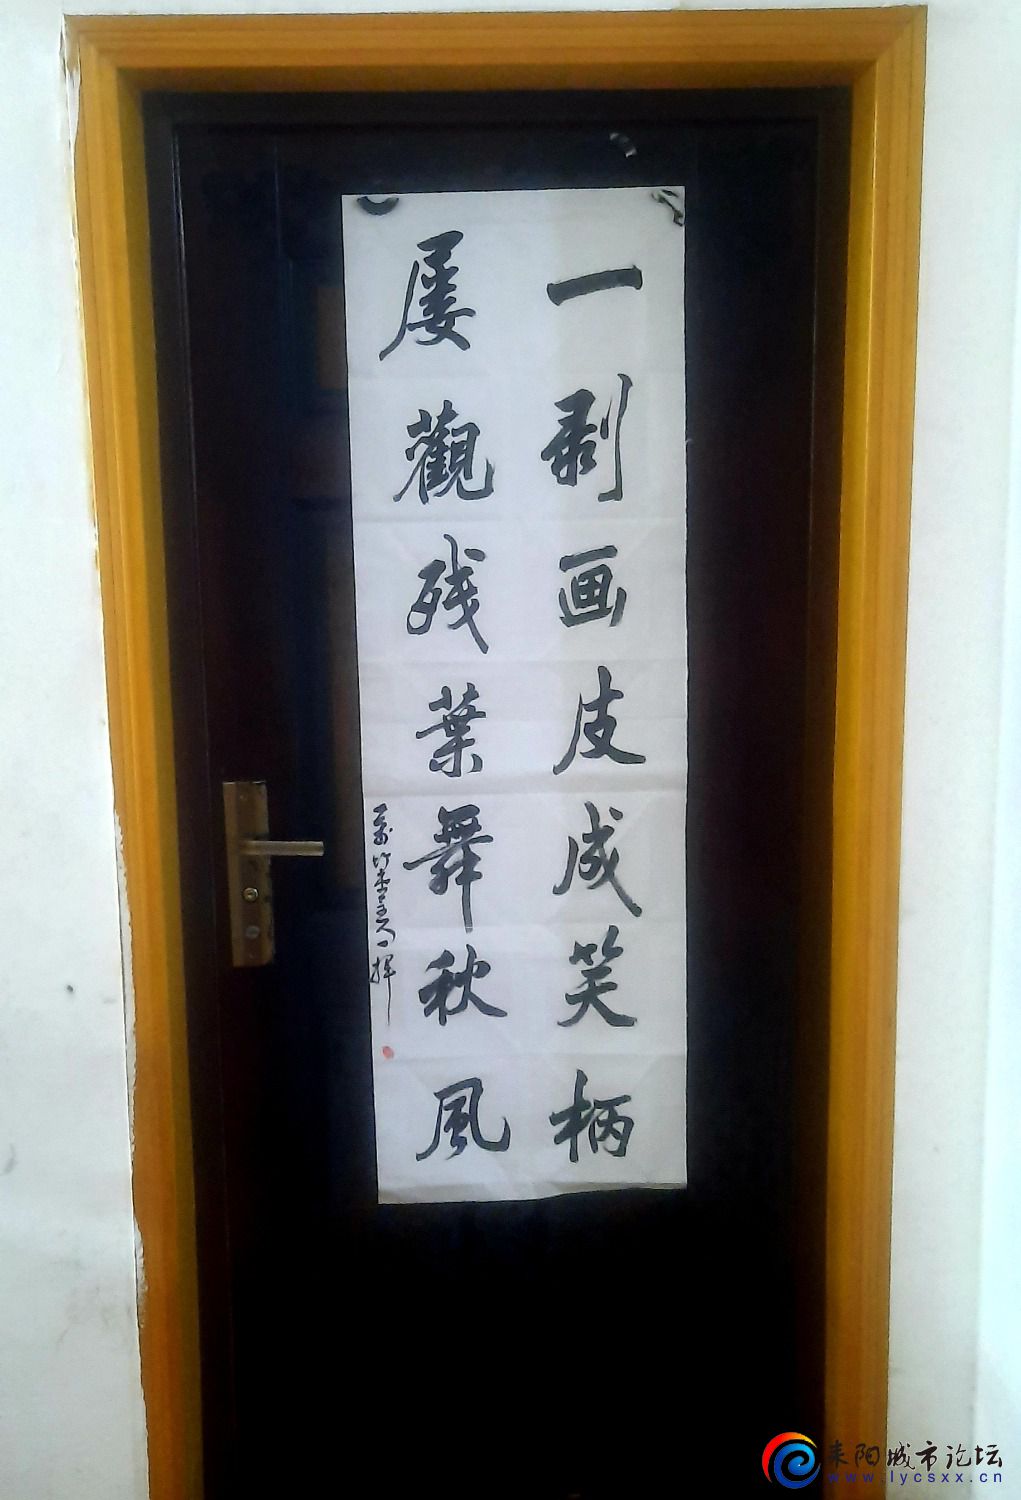 一剥画皮成笑柄
屡觀残葉舞秋風
耒阳城市论坛
www.lycsxx.cn